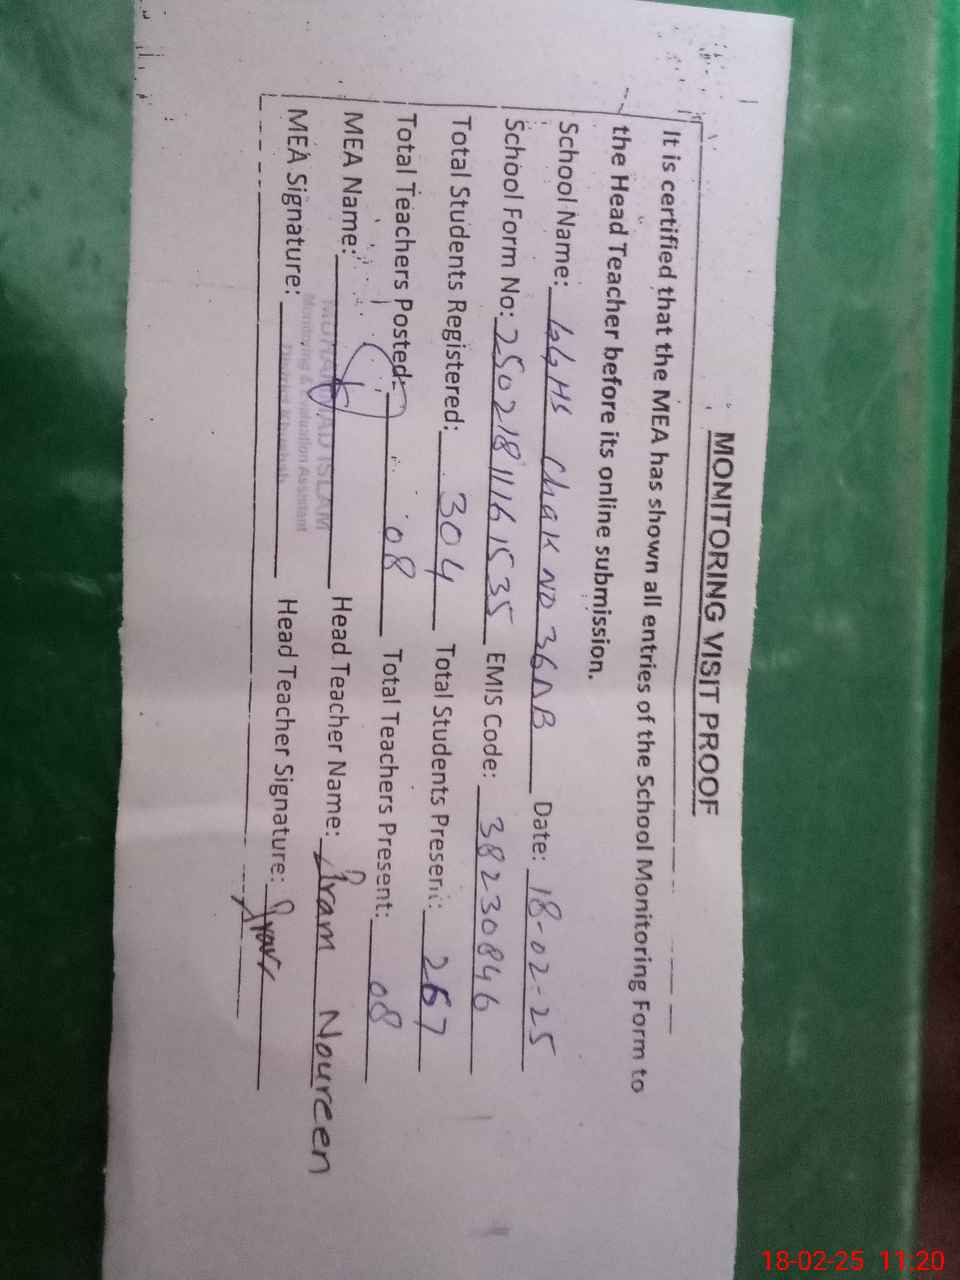 MONITORING VISIT PROOF
It is certified that the MEA has shown all entries of the School Monitoring Form to
the Head Teacher before its online submission.
School Name: GGHS Chak NO 36NB Date: 18-02-25
School Form No: 25021811161535 EMIS Code: 38230846
Total Students Registered: 304 Total Students Present: 267
Total Teachers Posted: 08 Total Teachers Present: 08
MEA Name: MUHAMMAD ISLAM Head Teacher Name: Iram Noureen
Monitoring & Evaluation Assistant
District Khushab
MEA Signature: Head Teacher Signature: Iram
18-02-25 11:20